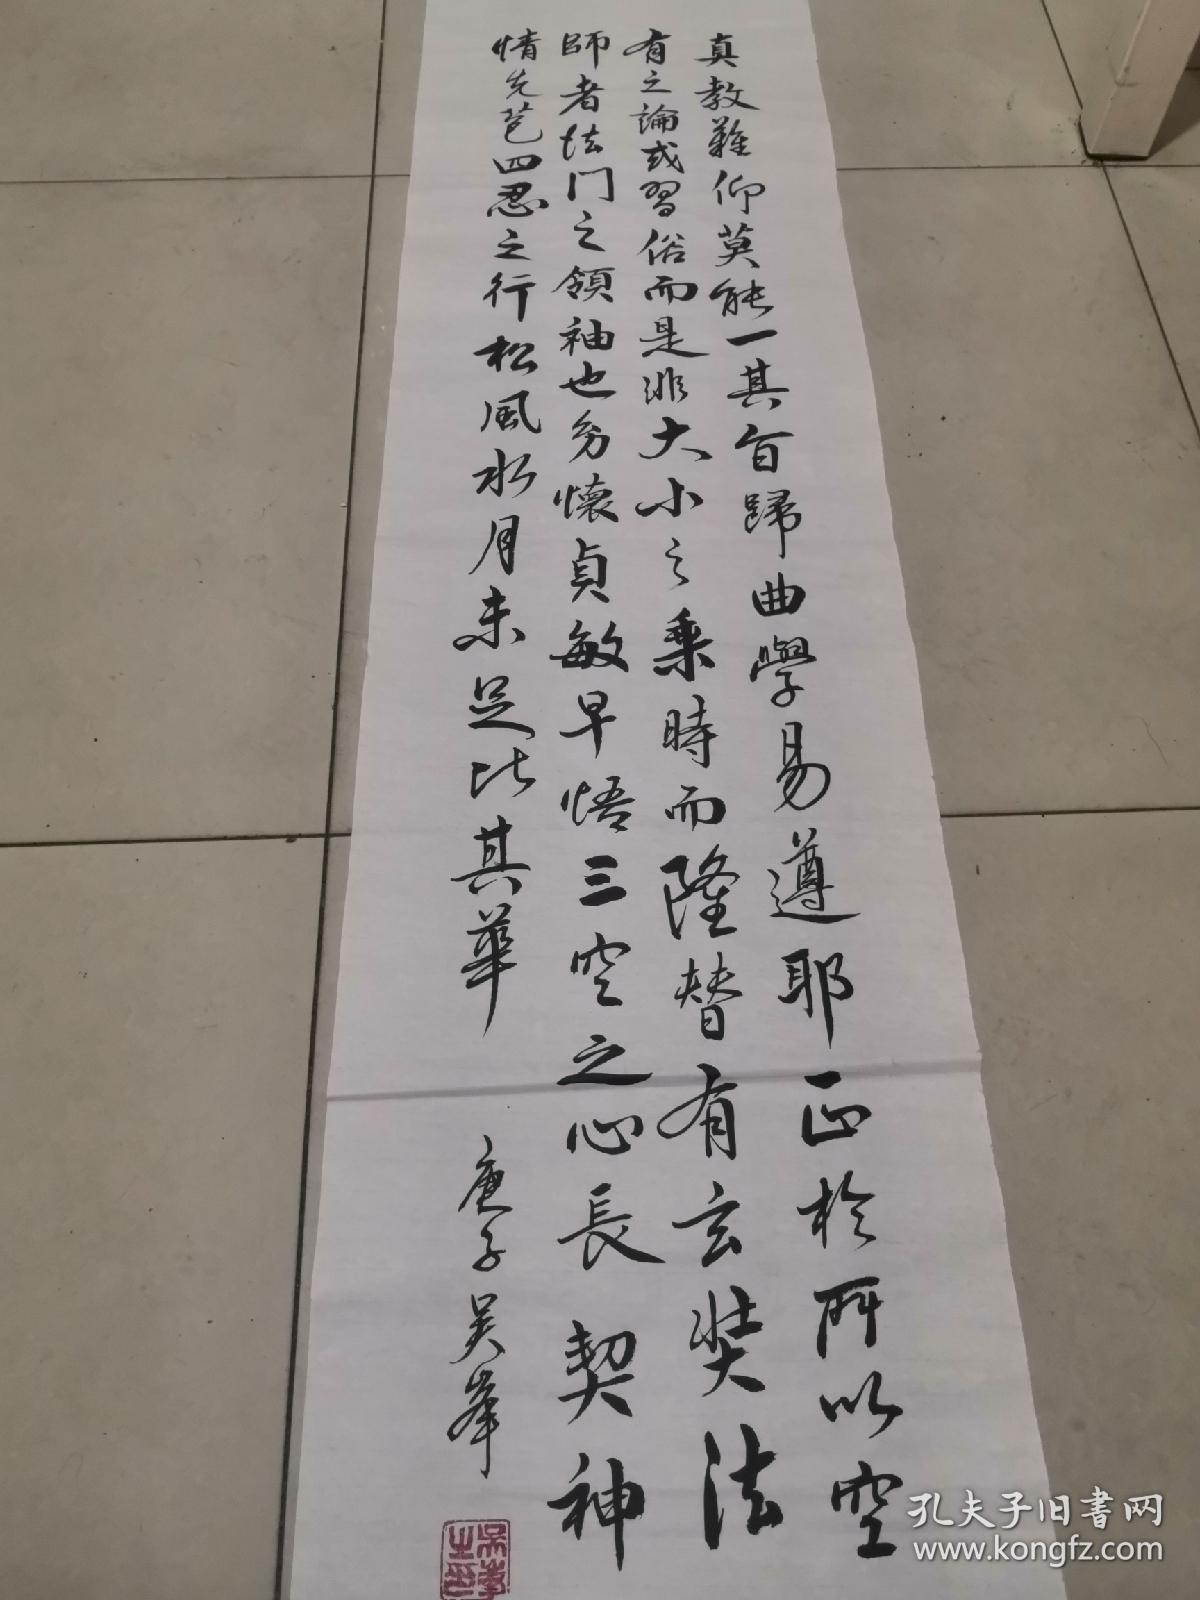 真教難仰莫能一其旨歸曲學易遵耶正於所以空
有之論或習俗而是非大小之乘時而隆替有玄奘法
師者法門之領袖也幼懷貞敏早悟三空之心長契神
情先苞四忍之行松風水月未足比其華
庚子吴峯
吴峯之印
孔夫子旧书网
www.kongfz.com